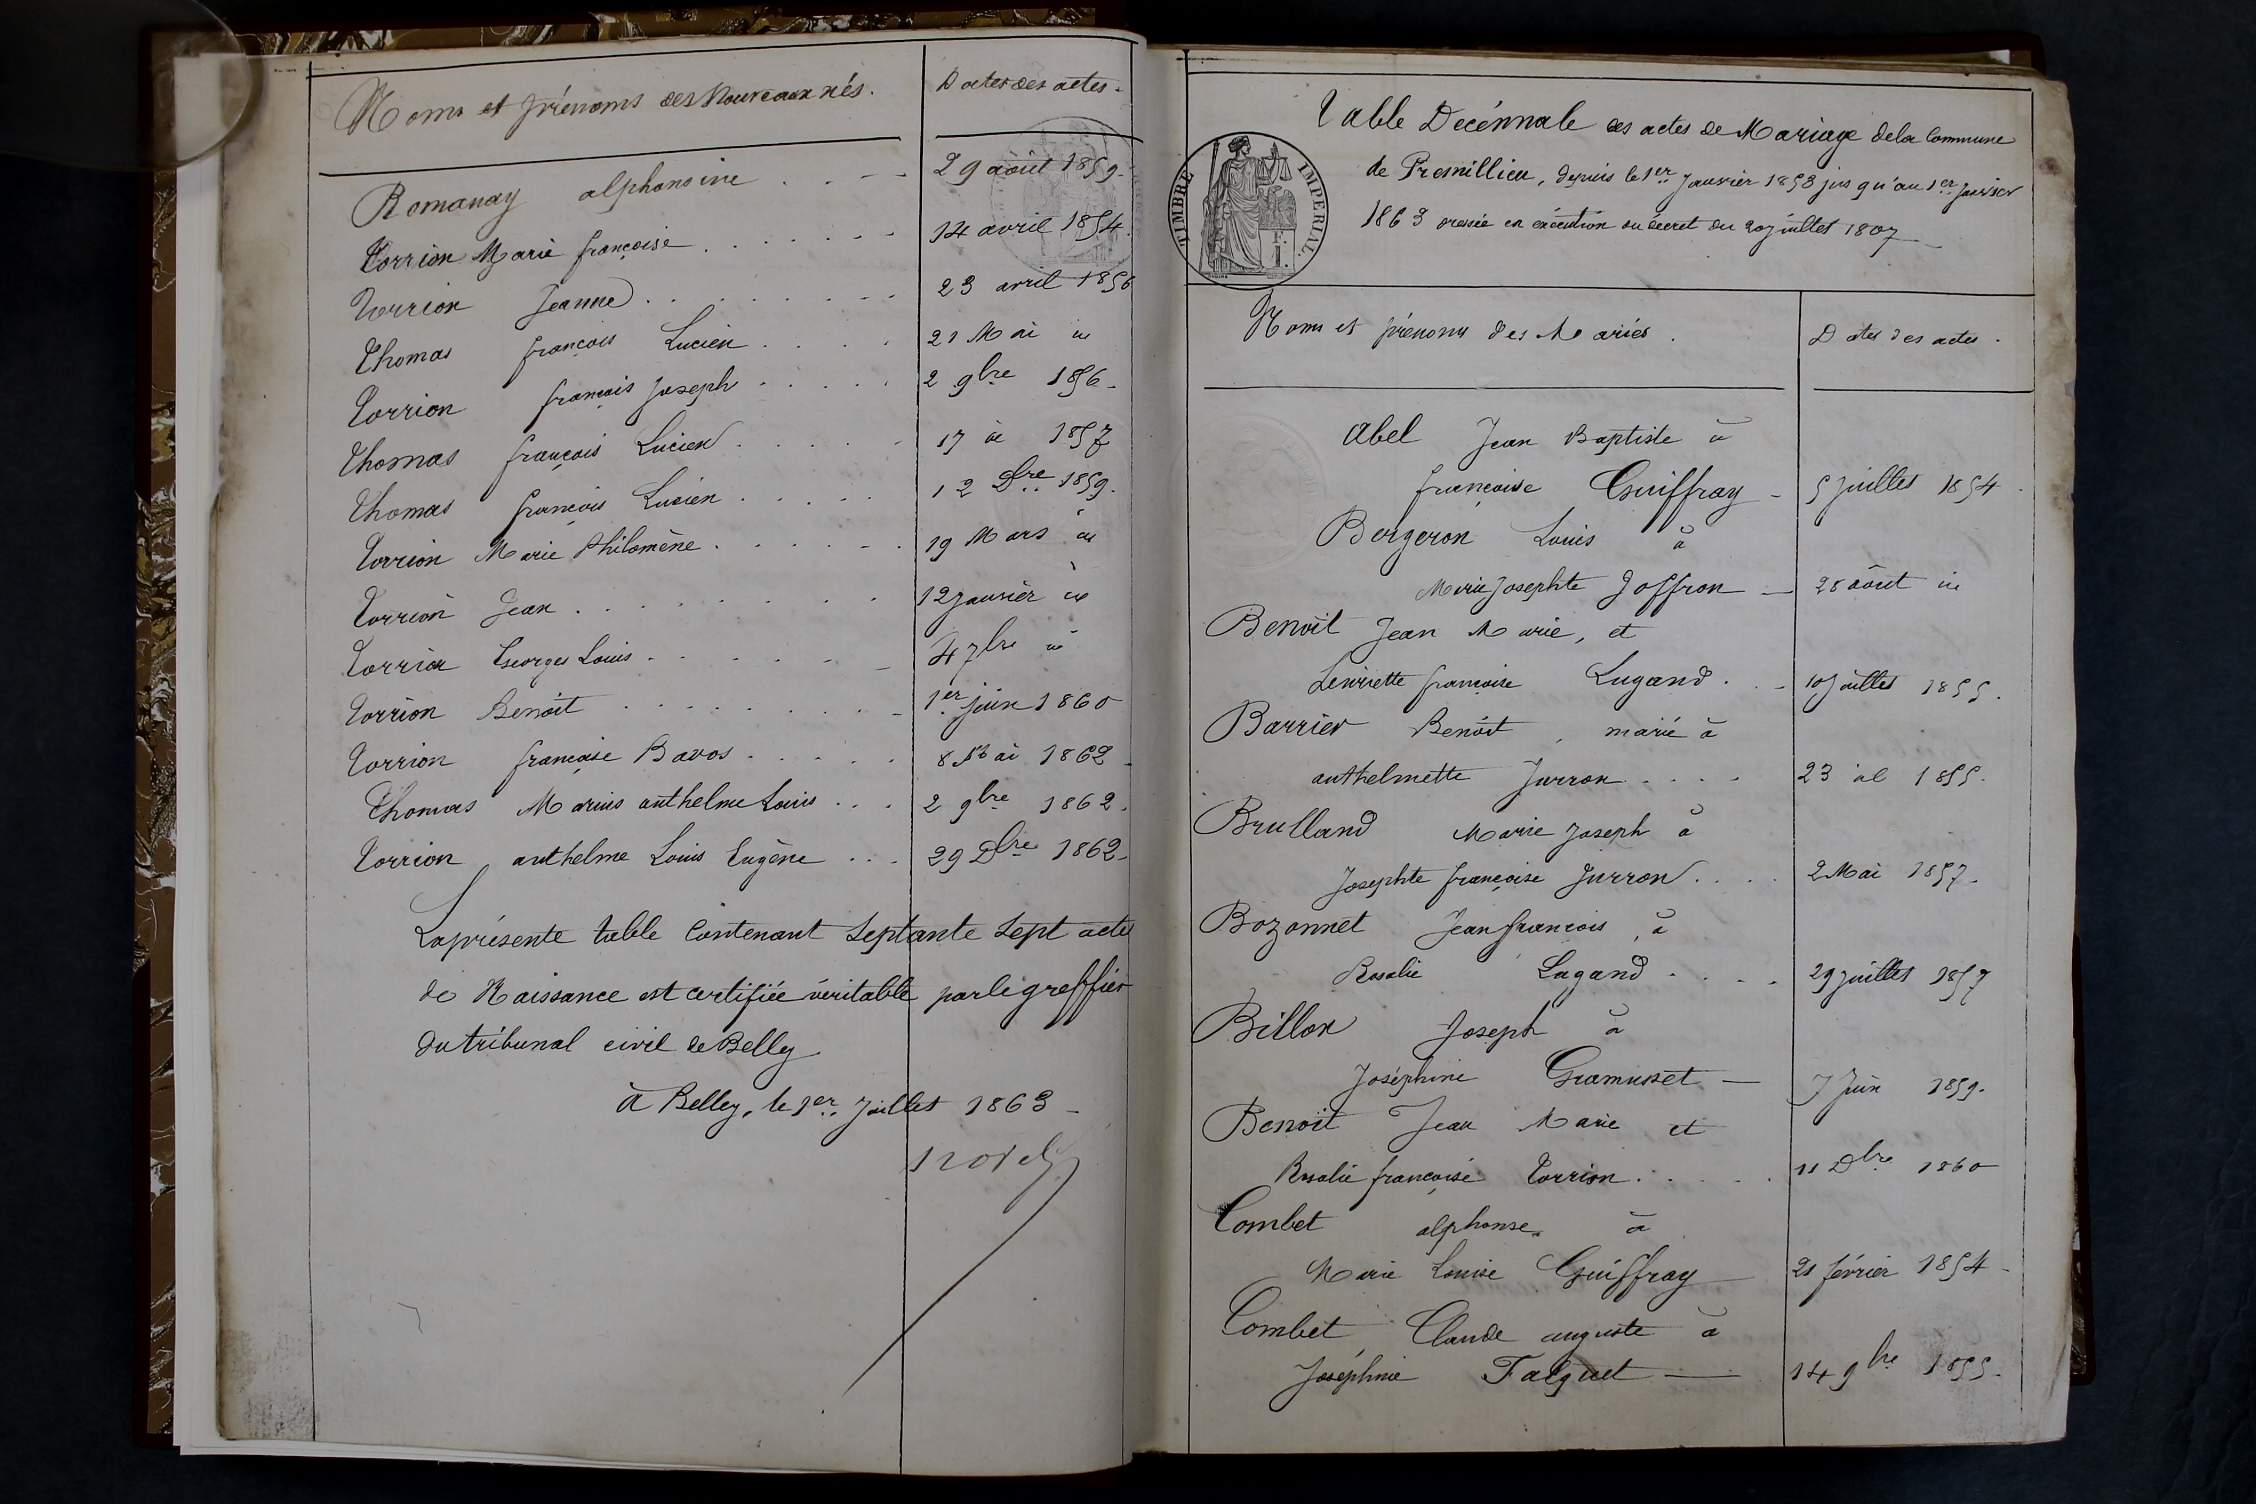 Noms et prénoms des Nouveaux nés. Dates des actes.
Romanay alphonsine . . - - 29 août 1859-
Torrion Marie françoise . . . . . - - 14 avril 1854.
Torrion Jeanne . . . . . - - - 23 avril 1856
Thomas françois Lucien . . . . 21 Mai id
Torrion françois Joseph . . . . . 2 9bre 1856-
Thomas françois Lucien . . . . . 17 id 1857
Thomas françois Lucien . . . . . 12 Dbre 1859.
Torrion Marie Philomène . . . . . - . 19 Mars id
Torrion Jean . . . . . . . . . 12 Janvier id
Torrion Georges Louis . . . . . . - 4 7bre id
Torrion Benoit . . . . . . . . . - 1er juin 1860
Torrion françoise Bavos . . . . . 8 Mai 1862
Thomas Marius anthelme Louis . . . 2 9bre 1862.
Torrion anthelme Louis Eugène . . . 29 Dbre 1862-
La présente table Contenant Septante Sept actes
de Naissance est certifiée véritable par le greffier
du tribunal civil de Belley
à Belley, le 1er Juillet 1863 -
TIMBRE IMPERIAL.
Table Decénnale des actes de Mariage de la Commune
de Presmillieu, depuis le 1er Janvier 1853 jusqu'au 1er Janvier
1863 dressée en exécution du décret du 20 juillet 1807
Noms et prénoms des Mariés. Dates des actes.
Abel Jean Baptiste à
françoise Guiffray - 5 juillet 1854.
Bergeron Louis à
Marie Josephte Joffron - 28 août id
Benoit Jean Marie, et
Henriette françoise Lugand . . - 10 Juillet 1855.
Barrier Benoit, marié à
anthelmette Jurron . . . . 23 id 1855.
Brulland Marie Joseph à
Josephte françoise Jurron . . . . 2 Mai 1857-
Bozonnet Jean françois, à
Rosalie Lugand . . . . 29 juillet 1857
Billon Joseph à
Joséphine Gramusset - 7 Juin 1859.
Benoit Jean Marie et
Rosalie françoise Torrion . . . . . 11 Dbre 1860
Combet alphonse à
Marie Louise Guiffray 21 février 1854-
Combet Claude auguste à
Joséphine Falquet - 14 9bre 1855-